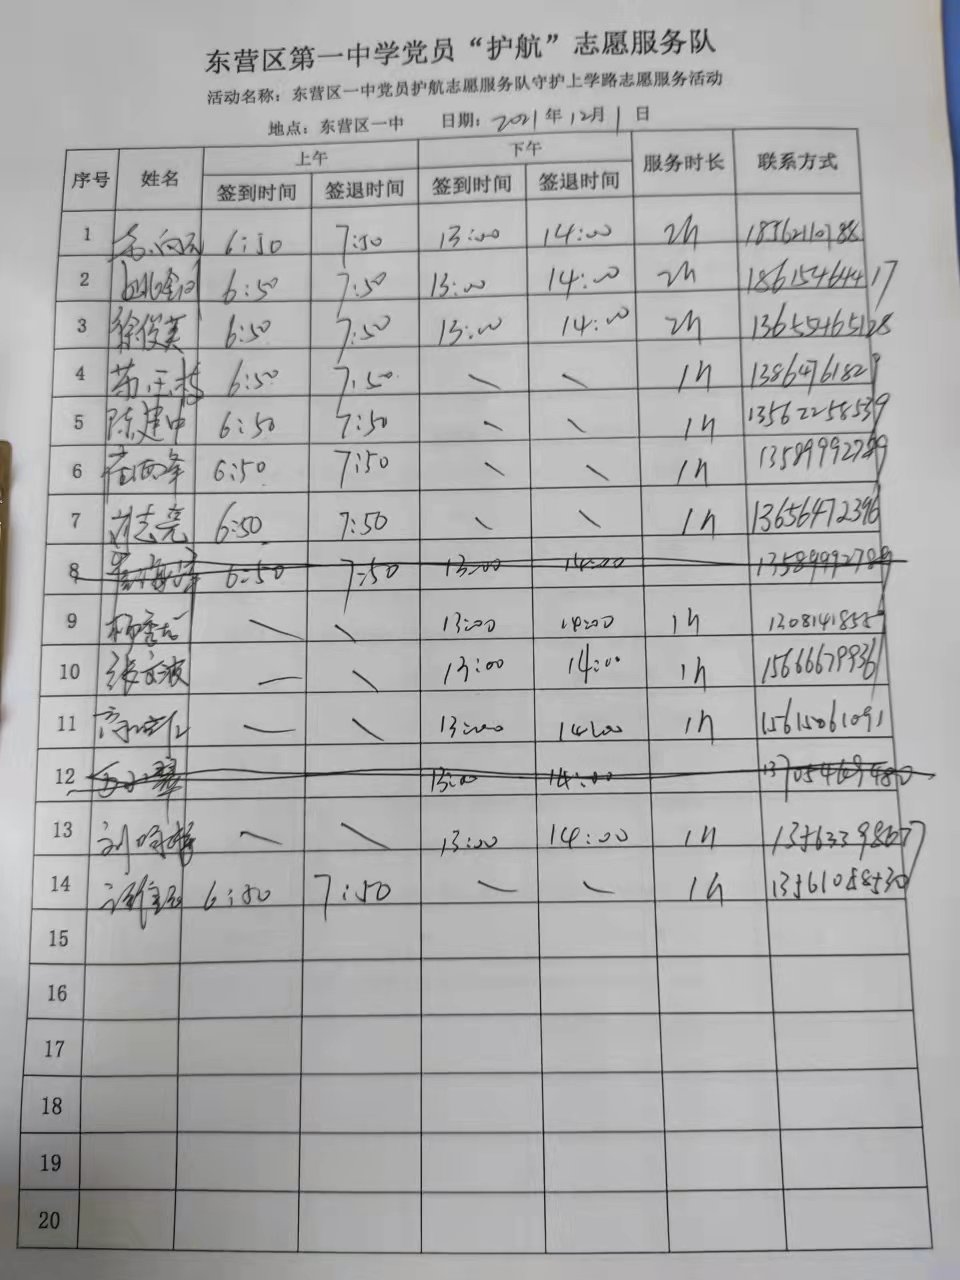 东营区第一中学党员“护航”志愿服务队
活动名称：东营区一中党员护航志愿服务队守护上学路志愿服务活动
地点：东营区一中 日期：2021年12月1日
序号 姓名 上午 下午 服务时长 联系方式
签到时间 签退时间 签到时间 签退时间
1 6:50 7:50 13:00 14:00 2h
2 6:50 7:50 13:00 14:00 2h 18615464417
3 徐俊英 6:50 7:50 13:00 14:00 2h 13655465128
4 6:50 7:50 1h
5 陈建中 6:50 7:50 1h 13562258539
6 6:50 7:50 1h 13589992789
7 刘志亮 6:50 7:50 1h 13656472396
8 6:50 7:50 13:00 14:00 13589992789
9 13:00 14:00 1h
10 13:00 14:00 1h 15666679936
11 13:00 14:00 1h 15615061091
12 13:00 14:00 13705469480
13 13:00 14:00 1h 13563398677
14 6:50 7:50 1h 13561088530
15
16
17
18
19
20